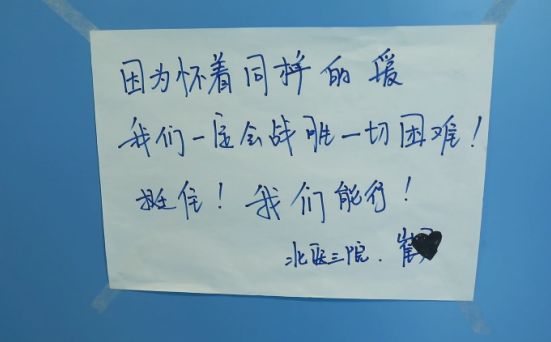 因为怀着同样的爱
我们一定会战胜一切困难！
挺住！我们能行！
北医三院. 崔